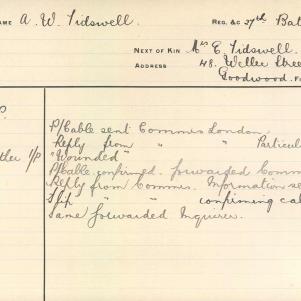 NAME A. W. Tidswell REG. &C 27th Bat
NEXT OF KIN Mrs E. Tidswell.
ADDRESS 48. Weller Stree
Goodwood.
P/Cable sent Commrs London
Reply from " " Particul
"Wounded"
P/Cable confirmed. forwarded Comm
Reply from Commrs. Information se
" " confirming cab
Same forwarded Inquirer.